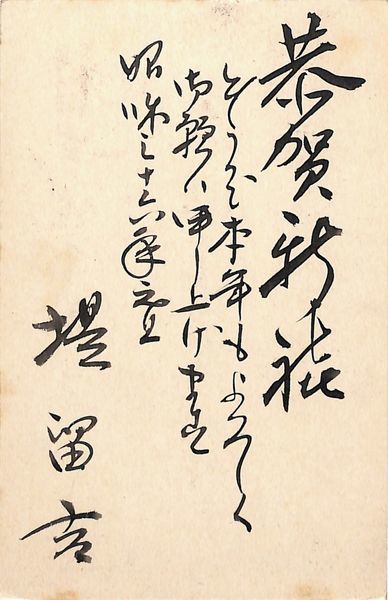 恭賀新禧
どうか本年もよろしく
御願ひ申し上げます
昭和十六年元旦
堤留吉